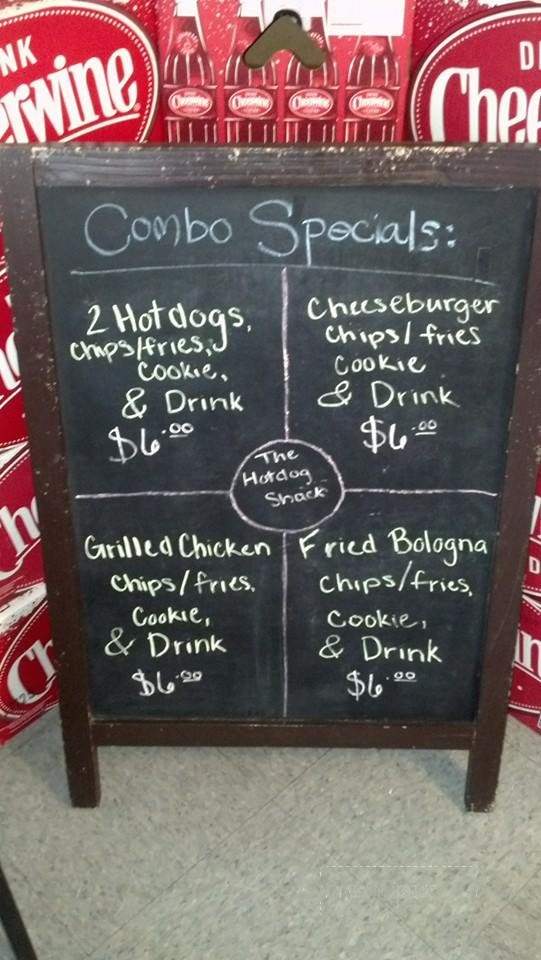 NK
erwine
CHEERWINE
CHEERWINE
CHEERWINE
CHEERWINE
DI
Chee
Combo Specials:
2 Hotdogs,
chips/fries,
Cookie,
& Drink
$6.00
Cheeseburger
Chips/fries
Cookie
& Drink
$6.00
The
Hotdog
Shack
Grilled Chicken
Chips/fries,
Cookie,
& Drink
$6.00
Fried Bologna
Chips/fries,
Cookie,
& Drink
$6.00